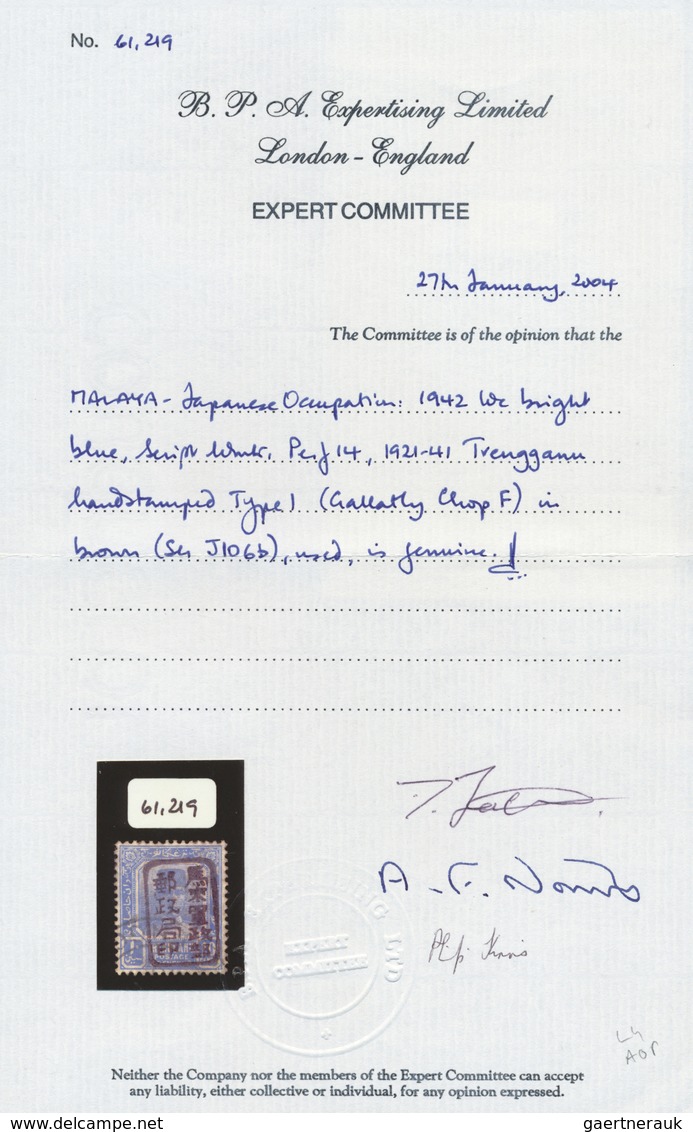 No. 61,219
B. P. A. Expertising Limited
London - England
EXPERT COMMITTEE
27th January, 2004
The Committee is of the opinion that the
MALAYA - Japanese Occupation: 1942 12c bright
blue, Script Wmk. Perf 14, 1921-41 Trengganu
handstamped Type 1 (Gallatly Chop F) in
brown (SG J106b), used, is genuine.
61,219
郵政局印
POSTAGE
EXPERT
COMMITTEE
LTD
A. F. Norris
Neither the Company nor the members of the Expert Committee can accept
any liability, either collective or individual, for any opinion expressed.
www.delcampe.net
gaertnerauk